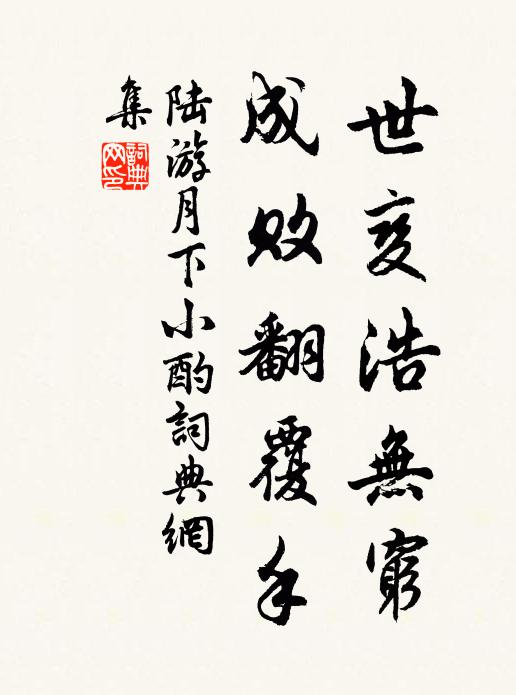 世变浩無窮
成敗翻覆手
陆游月下小酌詞典網
集
詞典
网印